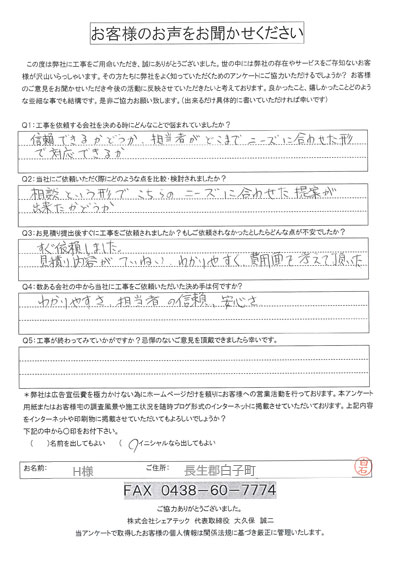 お客様のお声をお聞かせください
この度は弊社に工事をご用命いただき、誠にありがとうございました。世の中には弊社の存在やサービスをご存知ないお客
様が沢山いらっしゃいます。その方たちに弊社をよく知っていただくためのアンケートにご協力いただけるでしょうか？ お客様
のご意見をお聞かせいただき今後の活動に反映させていただきたいと考えております。良かったこと、嬉しかったことどのよう
な些細な事でも結構です。是非ご協力お願い致します。（出来るだけ具体的に書いていただければ幸いです）
Q1：工事を依頼する会社を決める時にどんなことで悩まれていましたか？
信頼できるかどうか、担当者がどこまでニーズに合わせた形
で対応できるか
Q2：当社にご依頼いただく際にどのような点を比較・検討されましたか？
相談という形でこちらのニーズに合わせた提案が
出来たかどうか
Q3：お見積り提出後すぐに工事をご依頼されましたか？もしご依頼されなかったとしたらどんな点が不安でしたか？
すぐ依頼しました。
見積り内容がていねい、わかりやすく、費用面も考えて頂いた
Q4：数ある会社の中から当社に工事をご依頼いただいた決め手は何ですか？
わかりやすさ、担当者の信頼、安心さ
Q5：工事が終わってみていかがですか？忌憚のないご意見を頂戴できましたら幸いです。
＊弊社は広告宣伝費を極力かけない為にホームページだけを頼りにお客様への営業活動を行っております。本アンケート
用紙またはお客様宅の調査風景や施工状況を随時ブログ形式のインターネットに掲載させていただいております。上記内容
をインターネットや印刷物に掲載させていただいてもよろしいでしょうか？
下記の中から〇印をお付下さい。
（　）名前を出してもよい　（〇）イニシャルなら出してもよい
お名前： H様 ご住所： 長生郡白子町
FAX 0438-60-7774
ご協力ありがとうございました。
株式会社シェアテック 代表取締役 大久保 誠二
当アンケートで取得したお客様の個人情報は関係法規に基づき厳正に管理いたします。